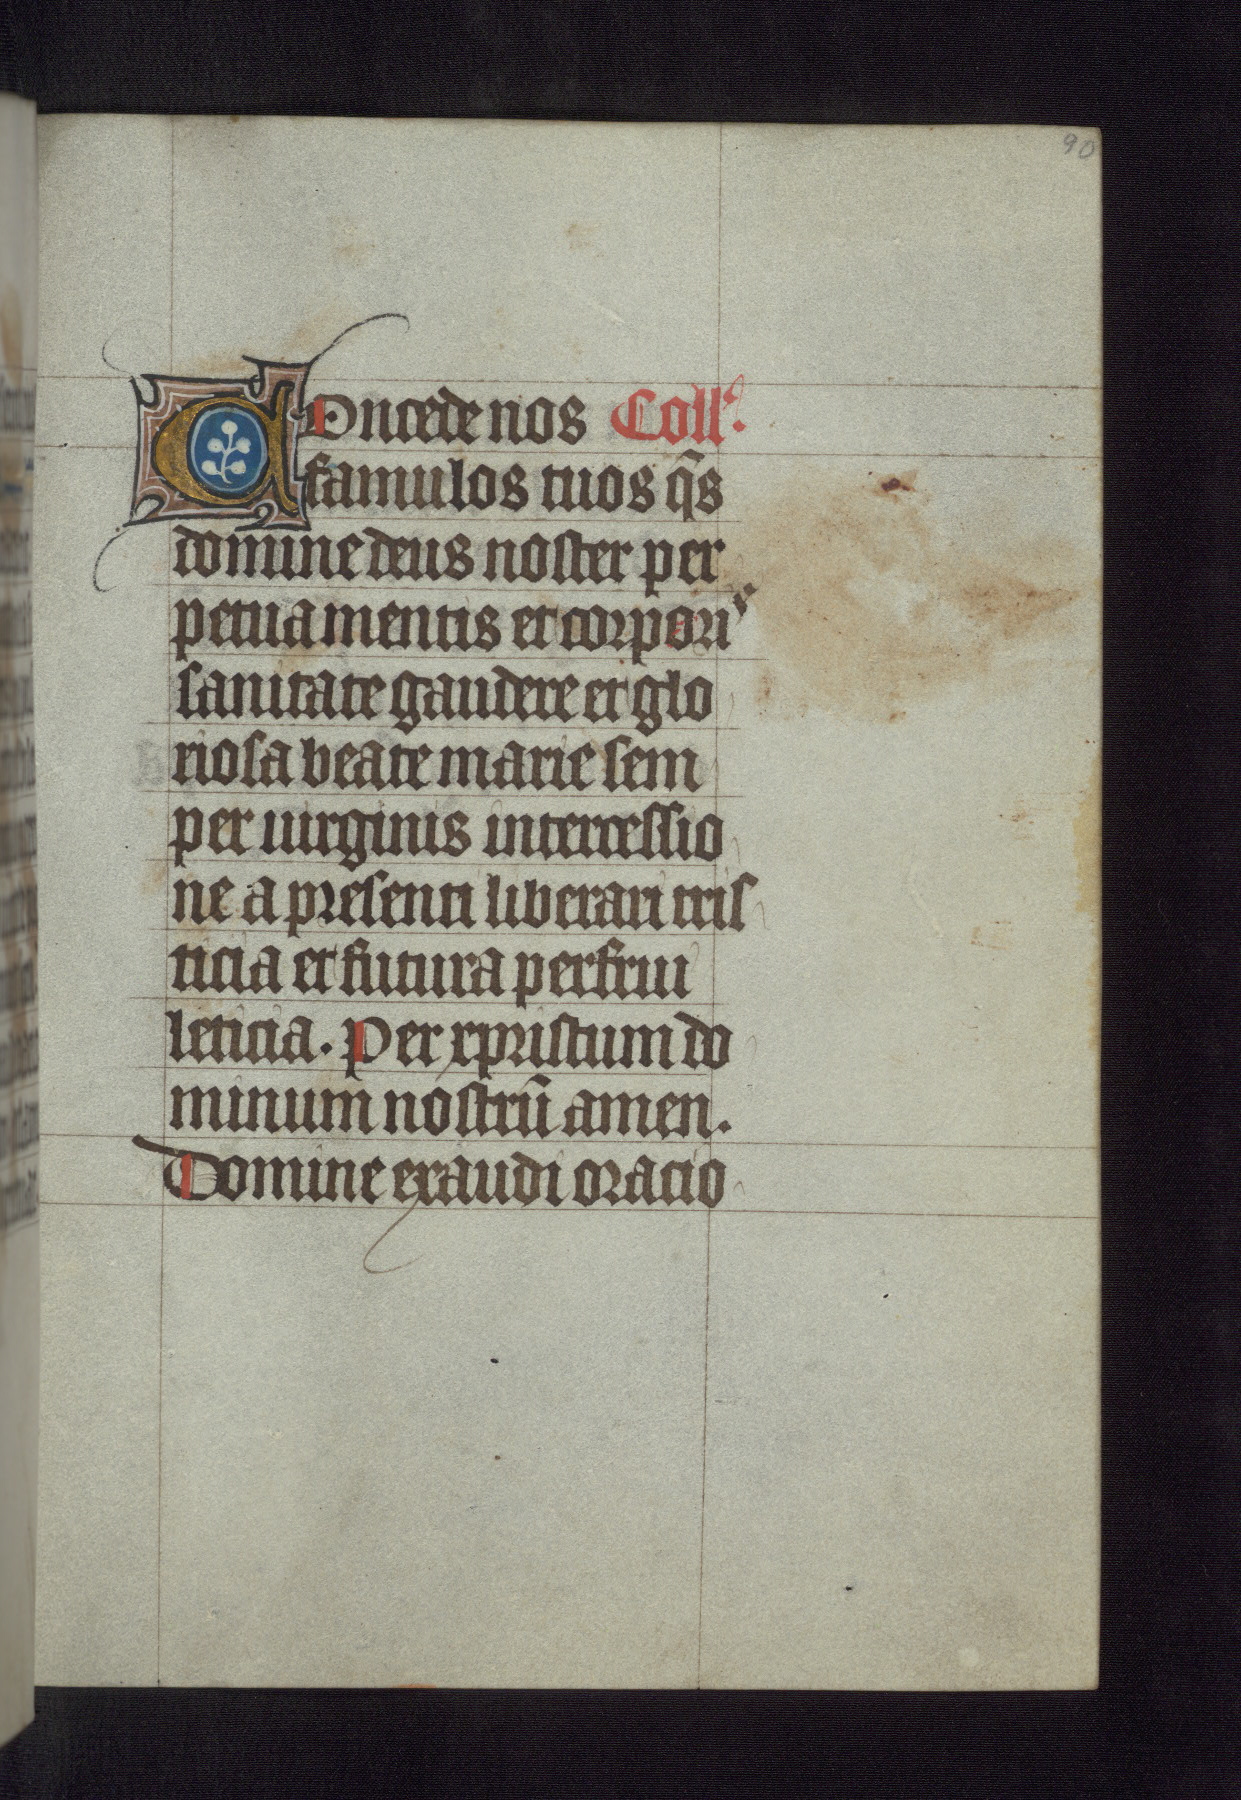 90
Concede nos Coll'.
famulos tuos q̄s
domine deus noster per
petua mentis et corporis
sanitate gaudere et glo
riosa beate marie sem
per uirginis intercessio
ne a presenti liberari tris
ticia et futura perfrui
leticia. Per xpristum do
minum nostrū amen.
Domine exaudi oracio